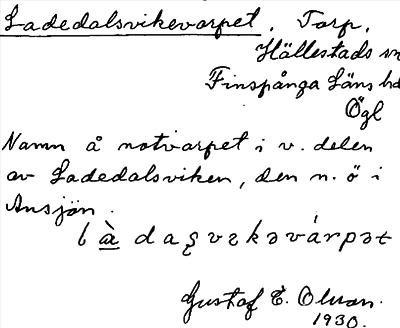 Ladedalsvikevarpet. Torp,
Hällestads sn
Finspånga läns hd
Ögl
Namn å notvarpet i v. delen
av Ladedalsviken, den n. ö i
Ansjön.
Gustaf E. Olson.
1930.